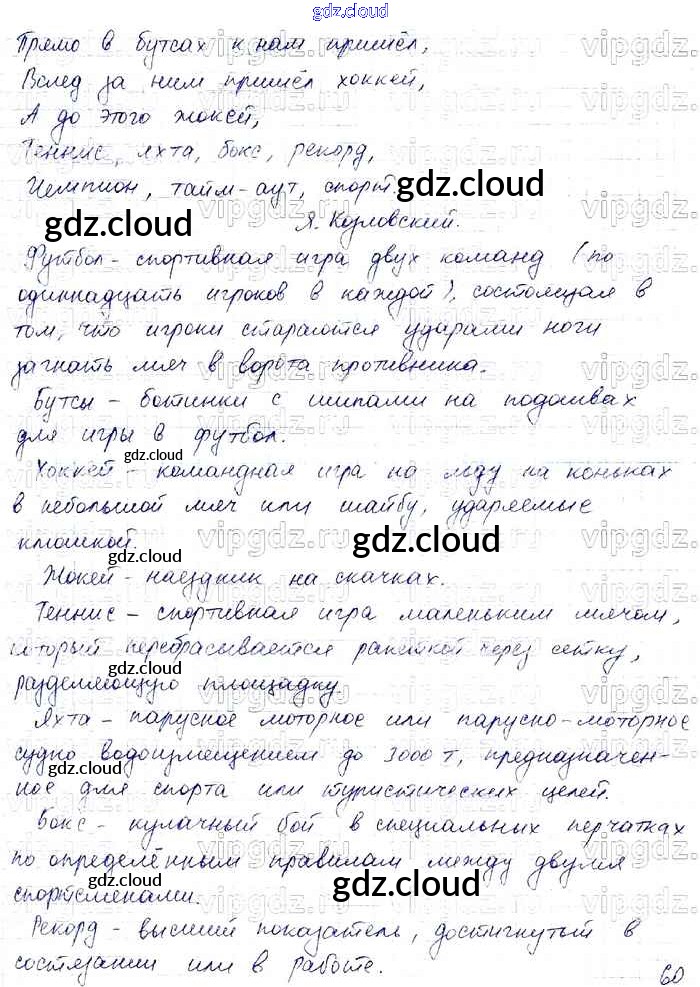 gdz.cloud
Прямо в бутсах к нам пришёл,
Вслед за ним пришёл хоккей,
А до этого жокей,
Теннис, яхта, бокс, рекорд,
Чемпион, тайм-аут, спорт.
gdz.cloud
gdz.cloud
Я. Козловский.
Футбол - спортивная игра двух команд (по
одиннадцать игроков в каждой), состоящая в
том, что игроки стараются ударами ноги
загнать мяч в ворота противника.
gdz.cloud
Бутсы - ботинки с шипами на подошвах
для игры в футбол.
gdz.cloud
Хоккей - командная игра на льду на коньках
в небольшой мяч или шайбу, ударяемые
клюшкой.
gdz.cloud
gdz.cloud
Жокей - наездник на скачках.
Теннис - спортивная игра маленьким мячом,
который перебрасывается ракеткой через сетку,
gdz.cloud
разделяющую площадку.
Яхта - парусное моторное или парусно-моторное
судно водоизмещением до 3000 т, предназначен-
gdz.cloud
ное для спорта или туристических целей.
Бокс - кулачный бой в специальных перчатках
по определённым правилам между двумя
спортсменами.
gdz.cloud
gdz.cloud
Рекорд - высший показатель, достигнутый в
состязании или в работе.
60
vipgdz.ru